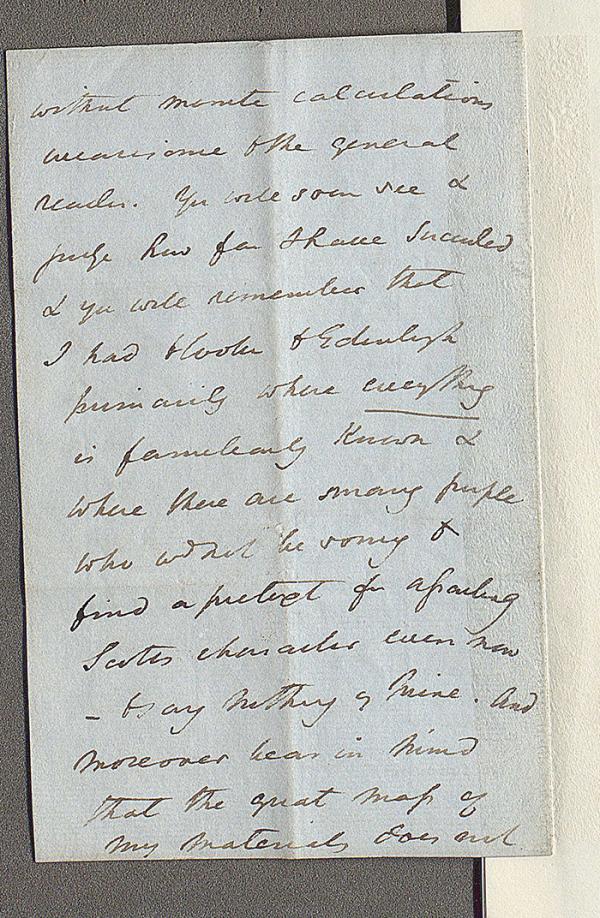 without minute calculations
wearisome to the general
reader. You will soon see &
judge how far I have succeeded
& you will remember that
I had to look to Edinburgh
primarily where everything
is familiarly known &
where there are so many people
who wd not be sorry to
find a pretext for assailing
Scotts character even now
– to say nothing of mine. And
moreover bear in mind
that the great mass of
my materials does not